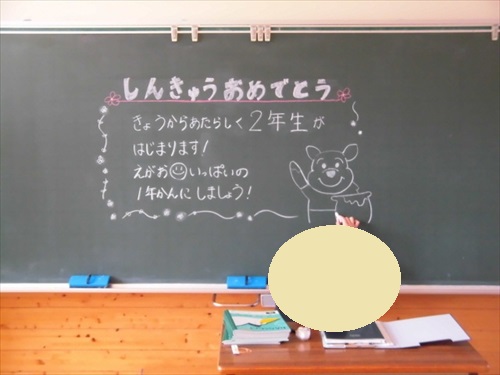 しんきゅうおめでとう
きょうからあたらしく2年生が
はじまります!
えがお☺いっぱいの
1年かんにしましょう!